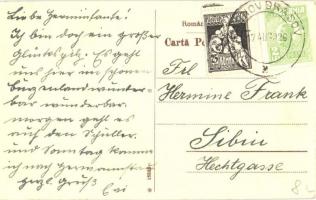 Liebe Herminitante!
Ich bin doch ein großer
Glückspilz. Es geht
uns hier im schönen
Burzenland wunder-
bar wunderbar.
morgen geht es
auf den Schuller.
und Sonntag komme
ich nach Hermannstadt
Gruß
Evi
Român
Cartă Po
BRAȘOV
Frl
Hermine Frank
Sibiu
Hechtgasse
8